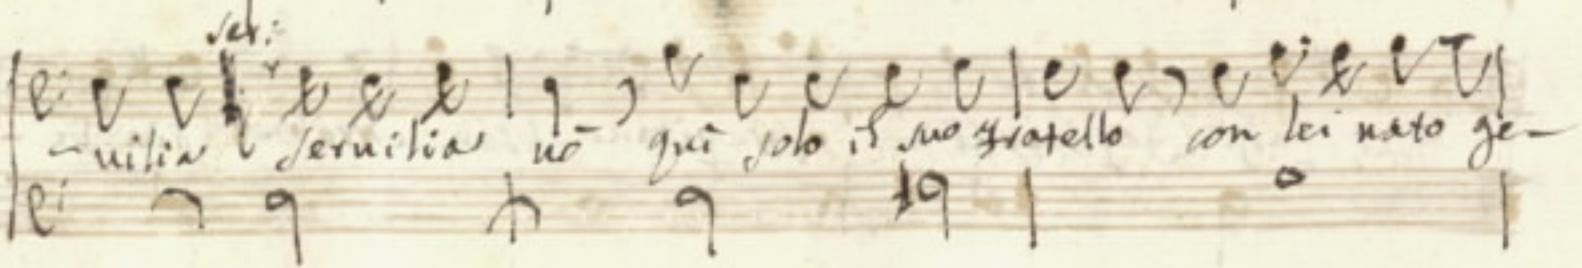 ser:
-uilia seruilia nō quì solo il suo fratello con lei nato ge-